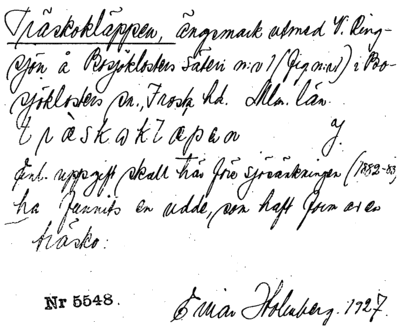 Träskokläppen, ängsmark utmed V. Ring-
sjön å Bosjöklosters säteri n:o 1 (fig n:o 1) i Bo-
sjöklosters sn., Frosta hd. Mlm. län.
träskoklapen
Enl. uppgift skall här före sjösänkningen (1882-83)
ha funnits en udde, som haft form av en
träsko.
Nr 5548.
Einar Holmberg. 1927.